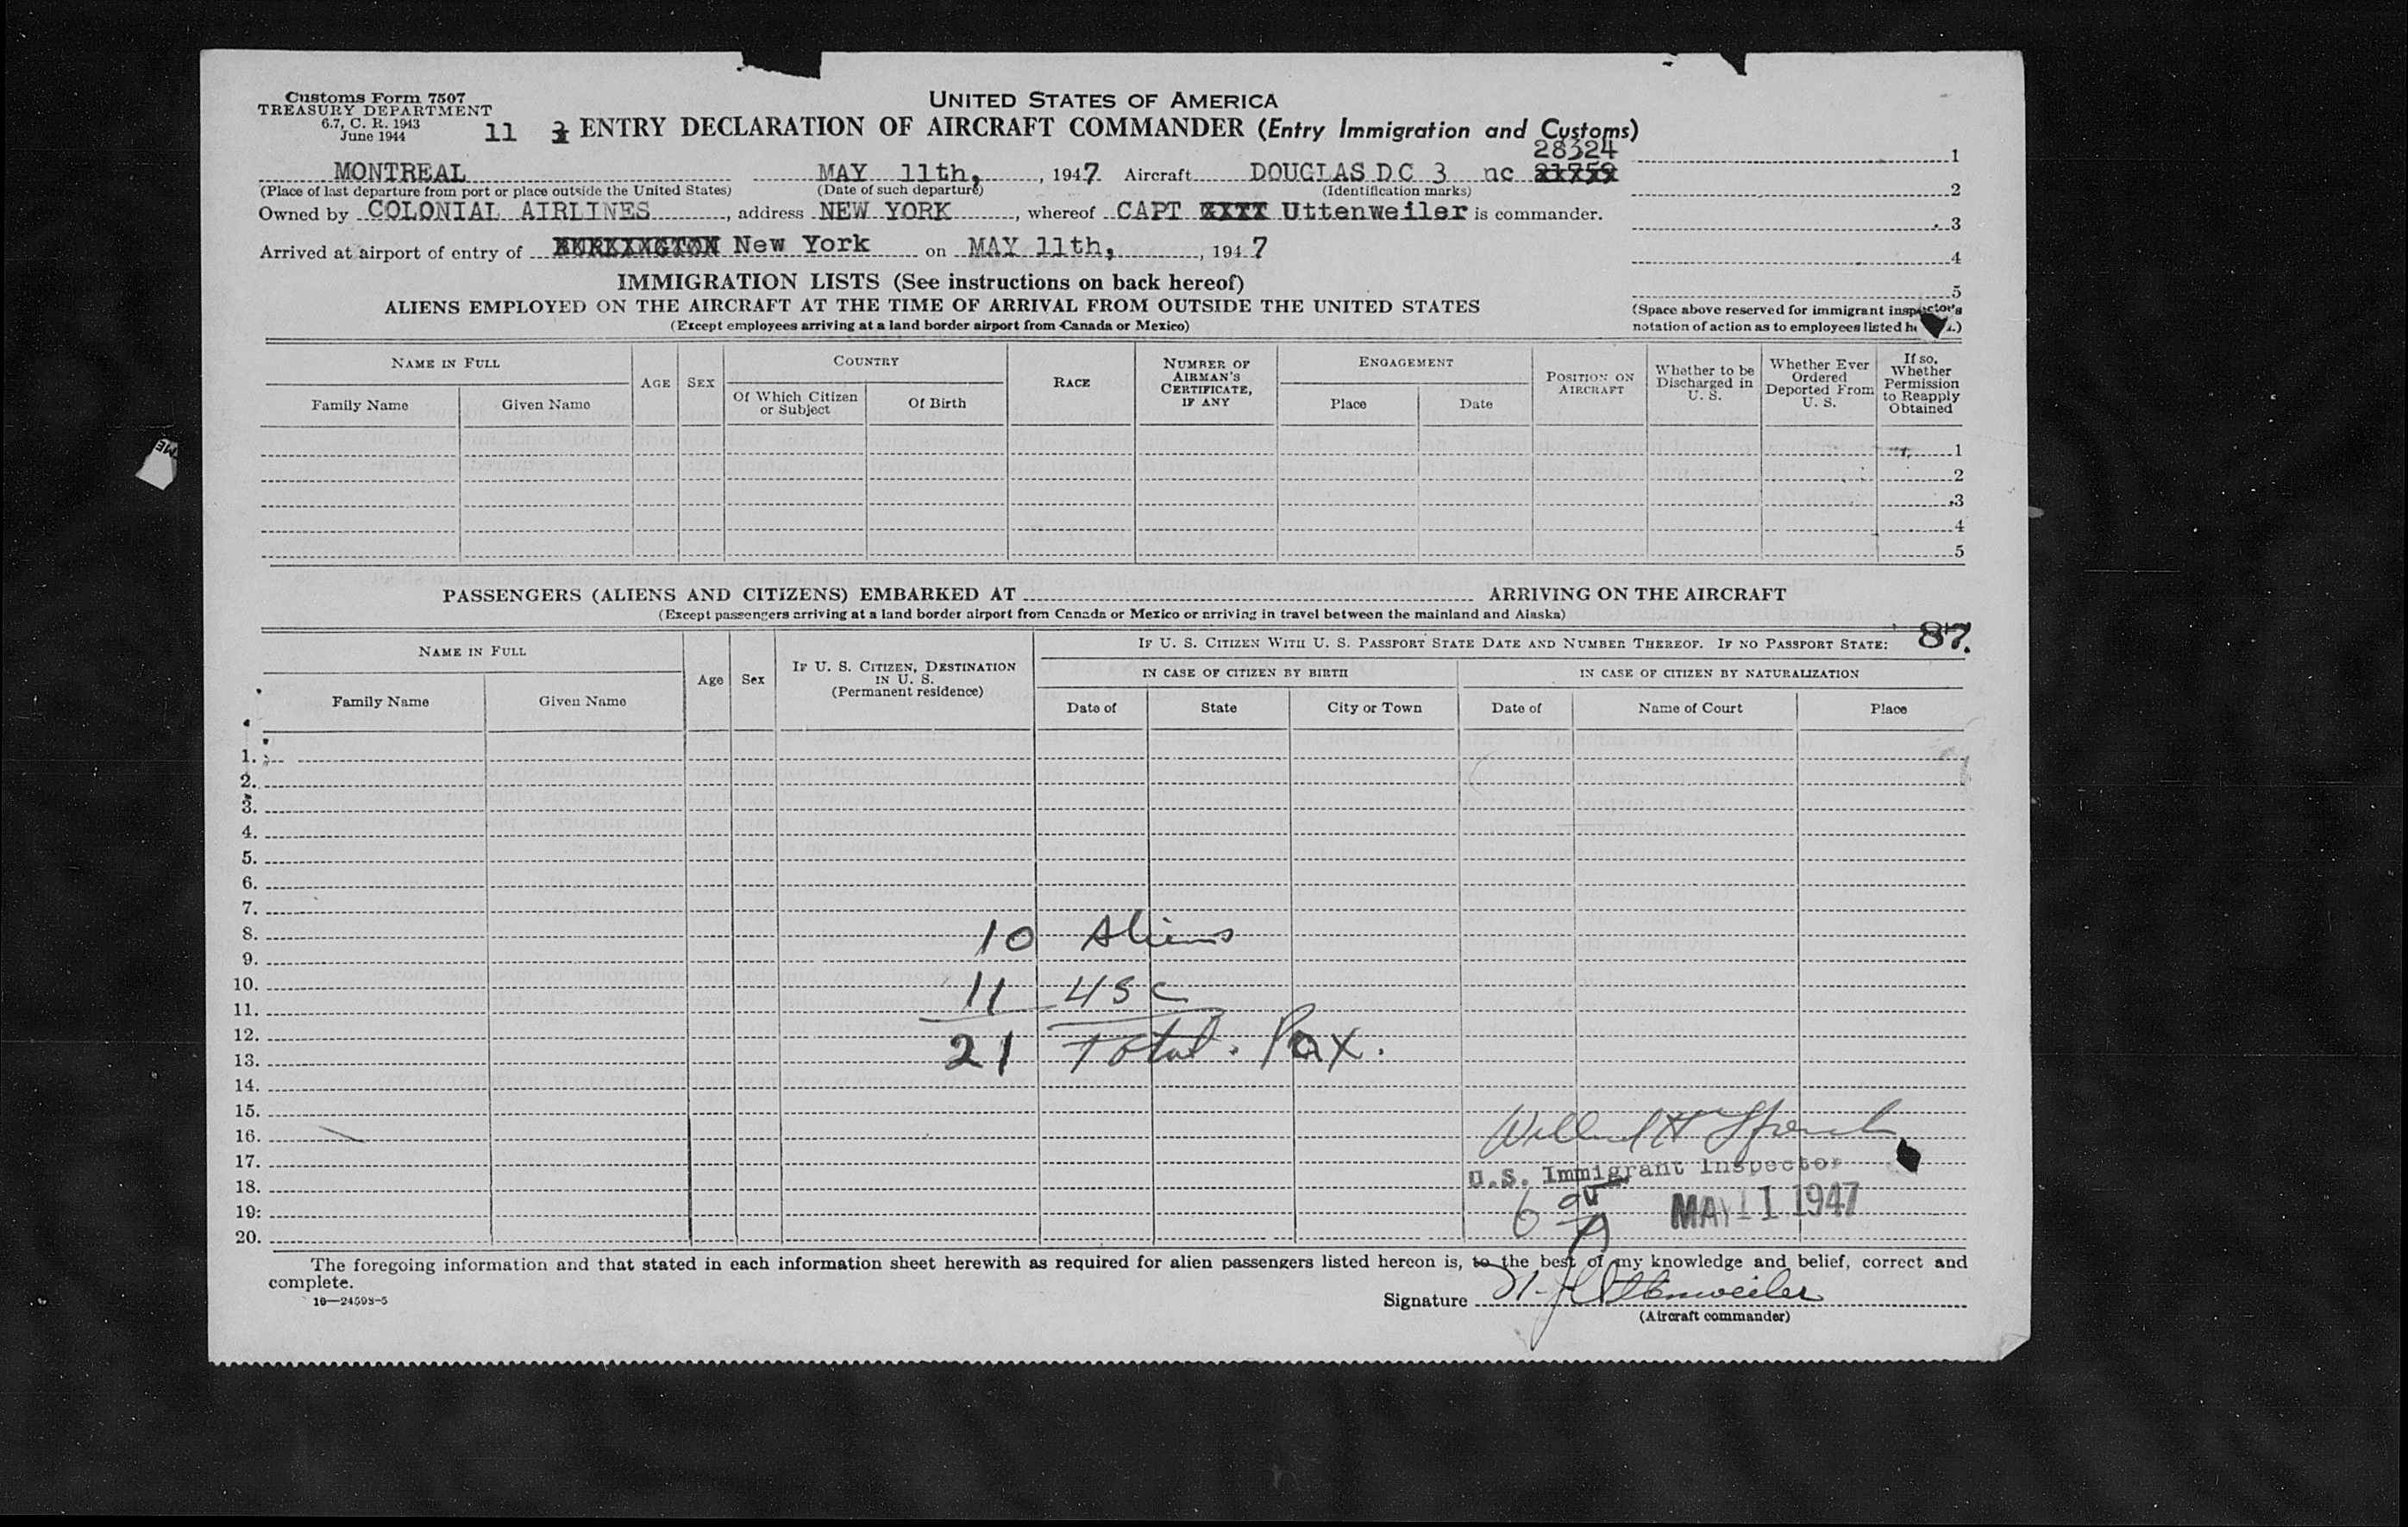 Customs Form 7507
TREASURY DEPARTMENT
6.7, C. R. 1943
June 1944
UNITED STATES OF AMERICA
11 ENTRY DECLARATION OF AIRCRAFT COMMANDER (Entry Immigration and Customs)
28324
MONTREAL MAY 11th, , 1947 Aircraft DOUGLAS DC 3 nc 21759
(Place of last departure from port or place outside the United States) (Date of such departure) (Identification marks)
Owned by COLONIAL AIRLINES , address NEW YORK , whereof CAPT Uttenweiler is commander.
Arrived at airport of entry of BURLINGTON New York on MAY 11th, , 1947
1
2
3
4
5
(Space above reserved for immigrant inspector's
notation of action as to employees listed
IMMIGRATION LISTS (See instructions on back hereof)
ALIENS EMPLOYED ON THE AIRCRAFT AT THE TIME OF ARRIVAL FROM OUTSIDE THE UNITED STATES
(Except employees arriving at a land border airport from Canada or Mexico)
NAME IN FULL
Family Name
Given Name
AGE
SEX
COUNTRY
Of Which Citizen
or Subject
Of Birth
RACE
NUMBER OF
AIRMAN'S
CERTIFICATE,
IF ANY
ENGAGEMENT
Place
Date
POSITION ON
AIRCRAFT
Whether to be
Discharged in
U. S.
Whether Ever
Ordered
Deported From
U. S.
If so,
Whether
Permission
to Reapply
Obtained
1
2
3
4
5
PASSENGERS (ALIENS AND CITIZENS) EMBARKED AT ARRIVING ON THE AIRCRAFT
(Except passengers arriving at a land border airport from Canada or Mexico or arriving in travel between the mainland and Alaska)
NAME IN FULL
Family Name
Given Name
Age
Sex
IF U. S. CITIZEN, DESTINATION
IN U. S.
(Permanent residence)
IF U. S. CITIZEN WITH U. S. PASSPORT STATE DATE AND NUMBER THEREOF. IF NO PASSPORT STATE: 87.
IN CASE OF CITIZEN BY BIRTH
Date of
State
City or Town
IN CASE OF CITIZEN BY NATURALIZATION
Date of
Name of Court
Place
1.
2.
3.
4.
5.
6.
7.
8. 10 Aliens
9.
10. 11 USC
11.
12.
13. 21 Total. Pax.
14.
15.
16. Willard H
17.
U.S. Immigrant Inspector
18.
19. 6 MAY 11 1947
20.
The foregoing information and that stated in each information sheet herewith as required for alien passengers listed hereon is, to the best of my knowledge and belief, correct and
complete.
16—24598-5
Signature Uttenweiler
(Aircraft commander)